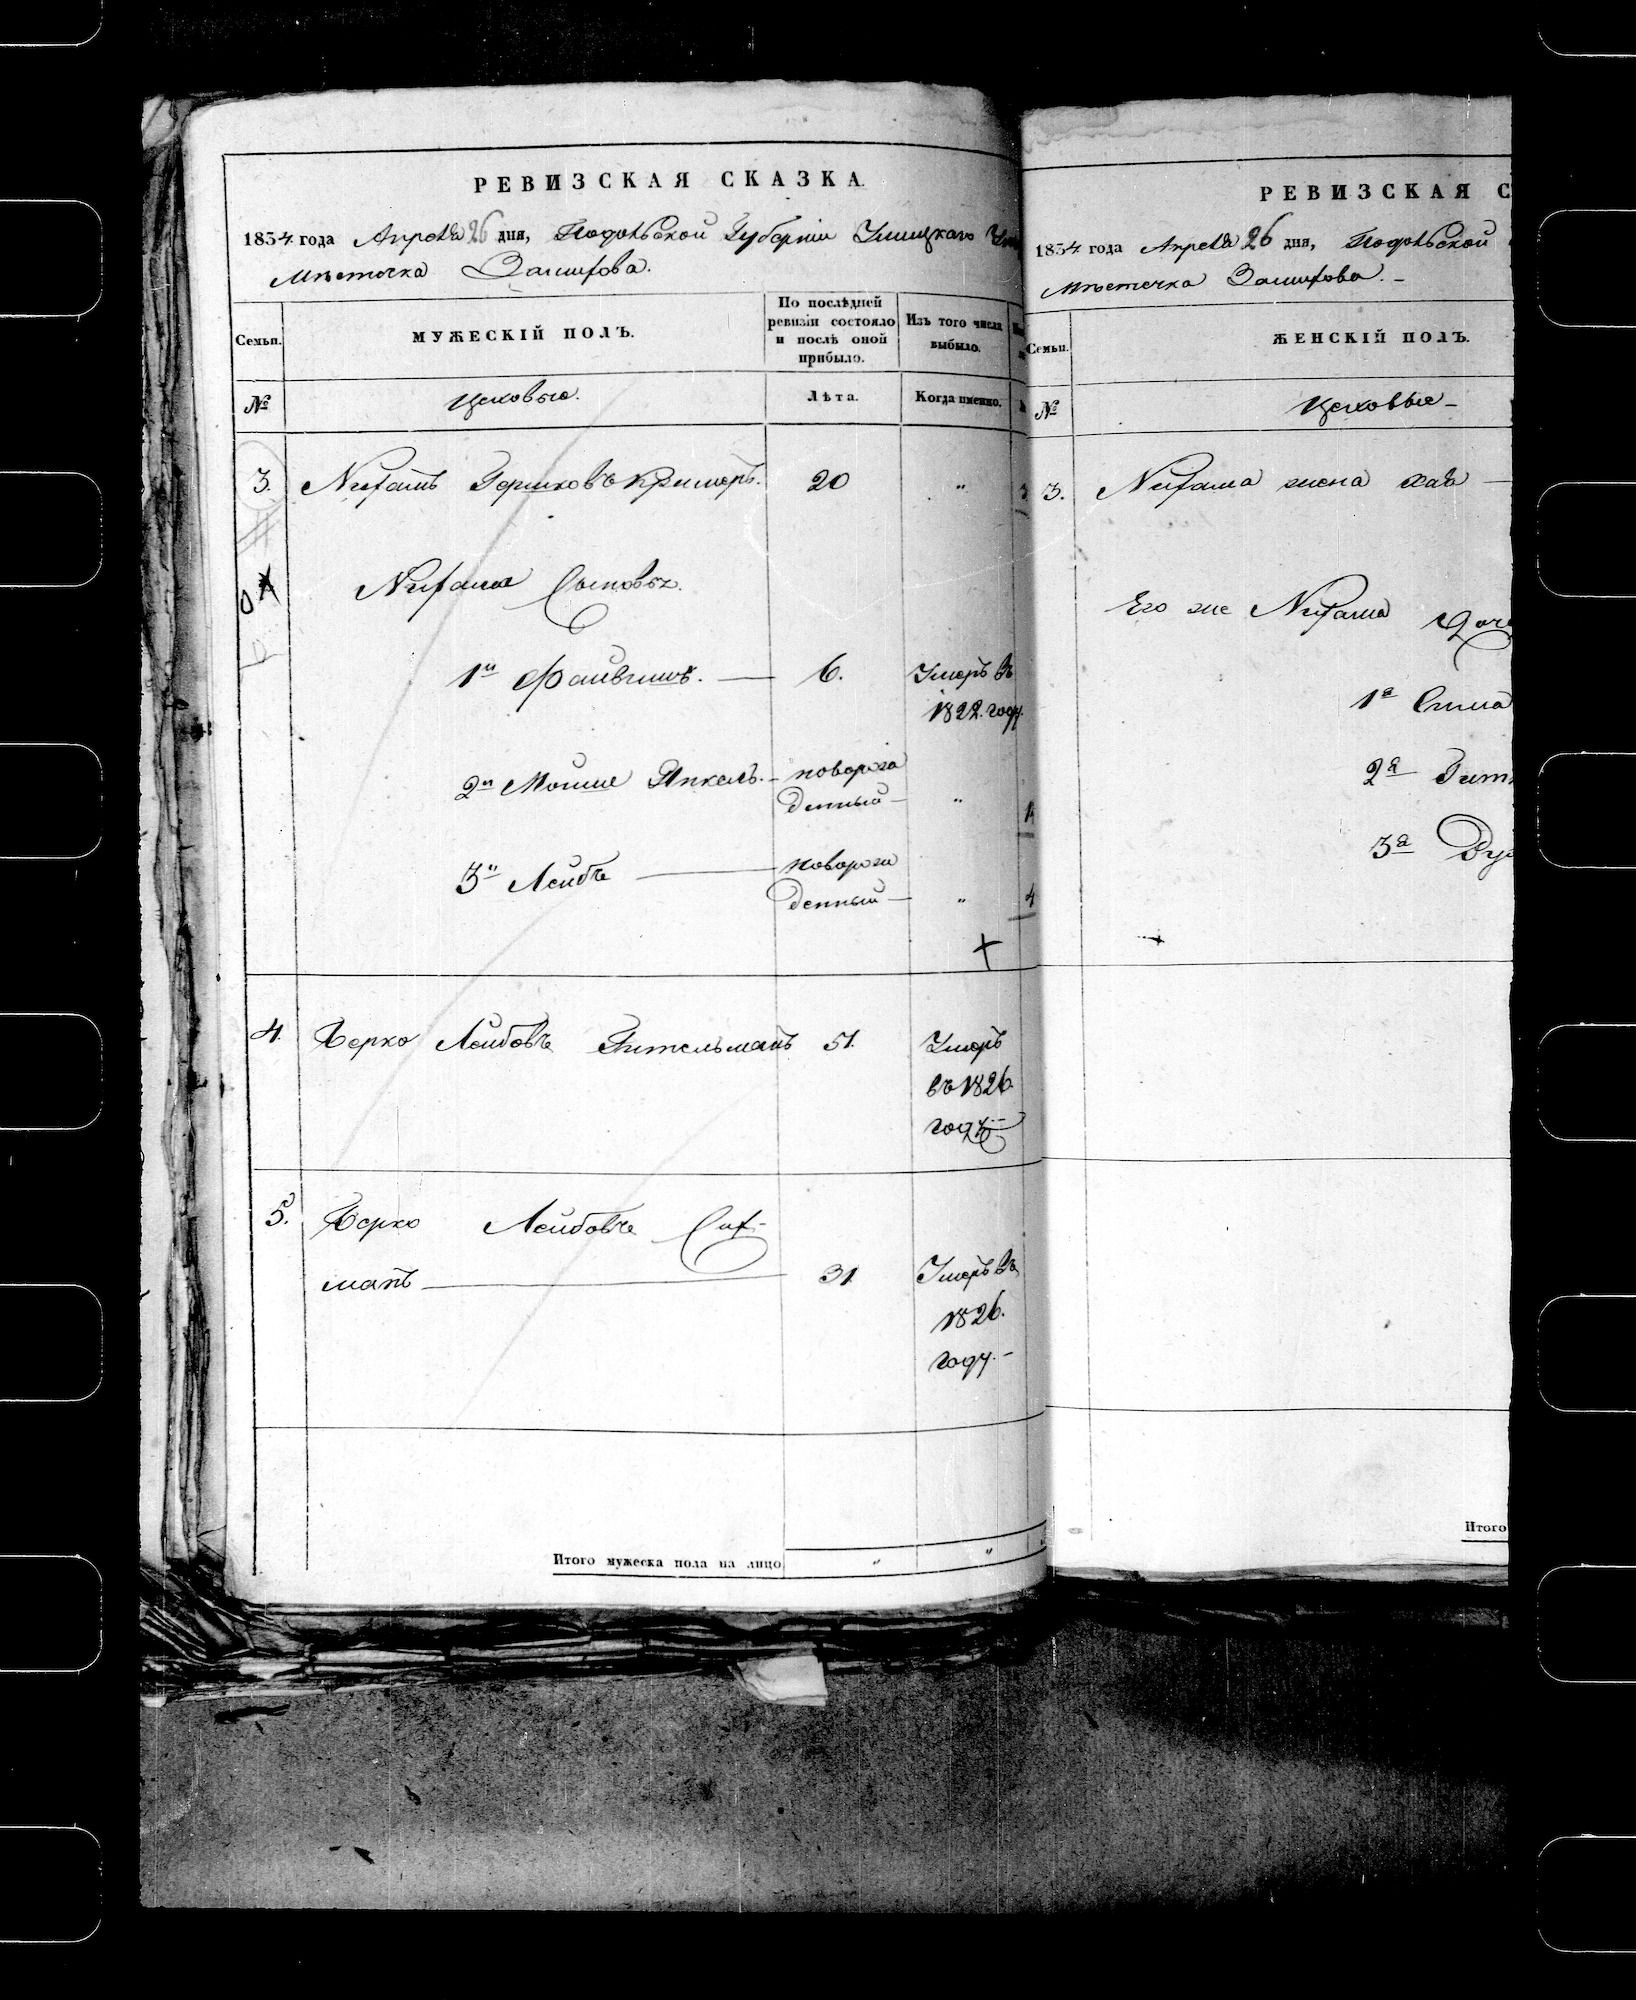 РЕВИЗСКАЯ СКАЗКА.
1834 года Апреля 26 дня, Подольской Губернiи Ушицкаго
Мѣстечка Замихова.
Семьи.
МУЖЕСКIЙ ПОЛЪ.
По послѣдней ревизiи состояло и послѣ оной прибыло.
Изъ того числа выбыло.
№
Цеховые.
Лѣта.
Когда именно.
3. Нухамъ Гершковъ Кримеръ. 20 "
Нухама Сыновья.
1й Файвишъ. — 6. Умеръ въ
1822. году.
2й Мошие Янкель. — новорож
денный — "
3й Лейбъ — новорож
денный — "
4. Берко Лейбовъ Гительманъ 51. Умеръ
въ 1826
году —
5. Берко Лейбовъ Сух-
манъ — 31 Умеръ въ
1826.
году. —
Итого мужеска пола на лицо " "
РЕВИЗСКАЯ С
1834 года Апреля 26 дня, Подольской
Мѣстечка Замихова. –
Семьи.
ЖЕНСКIЙ ПОЛЪ.
№
Цеховые –
3. Нухама жена Хая —
Его же Нухама Доче
1я Сима
2я Гит
3я
Итого